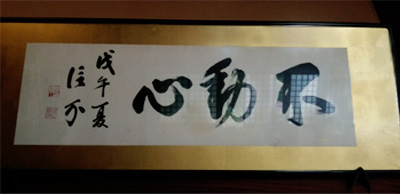 不動心
戊午夏